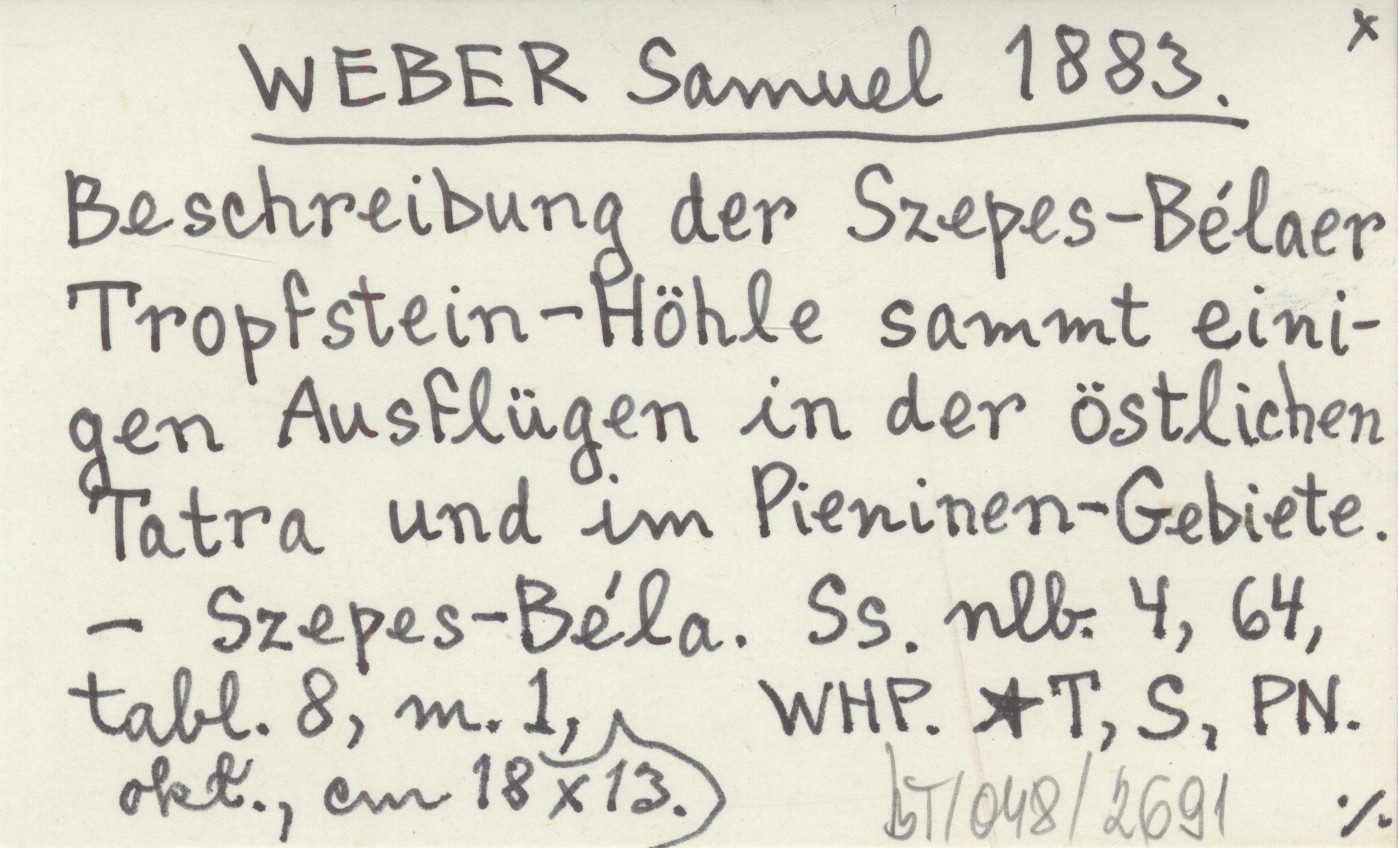 x
WEBER Samuel 1883.
Beschreibung der Szepes-Bélaer
Tropfstein-Höhle sammt eini-
gen Ausflügen in der östlichen
Tatra und im Pieninen-Gebiete.
- Szepes-Béla. Ss. nlb. 4, 64,
tabl. 8, m. 1, WHP. ★T, S, PN.
okł., cm 18x13.
BT/048/2691 ./.